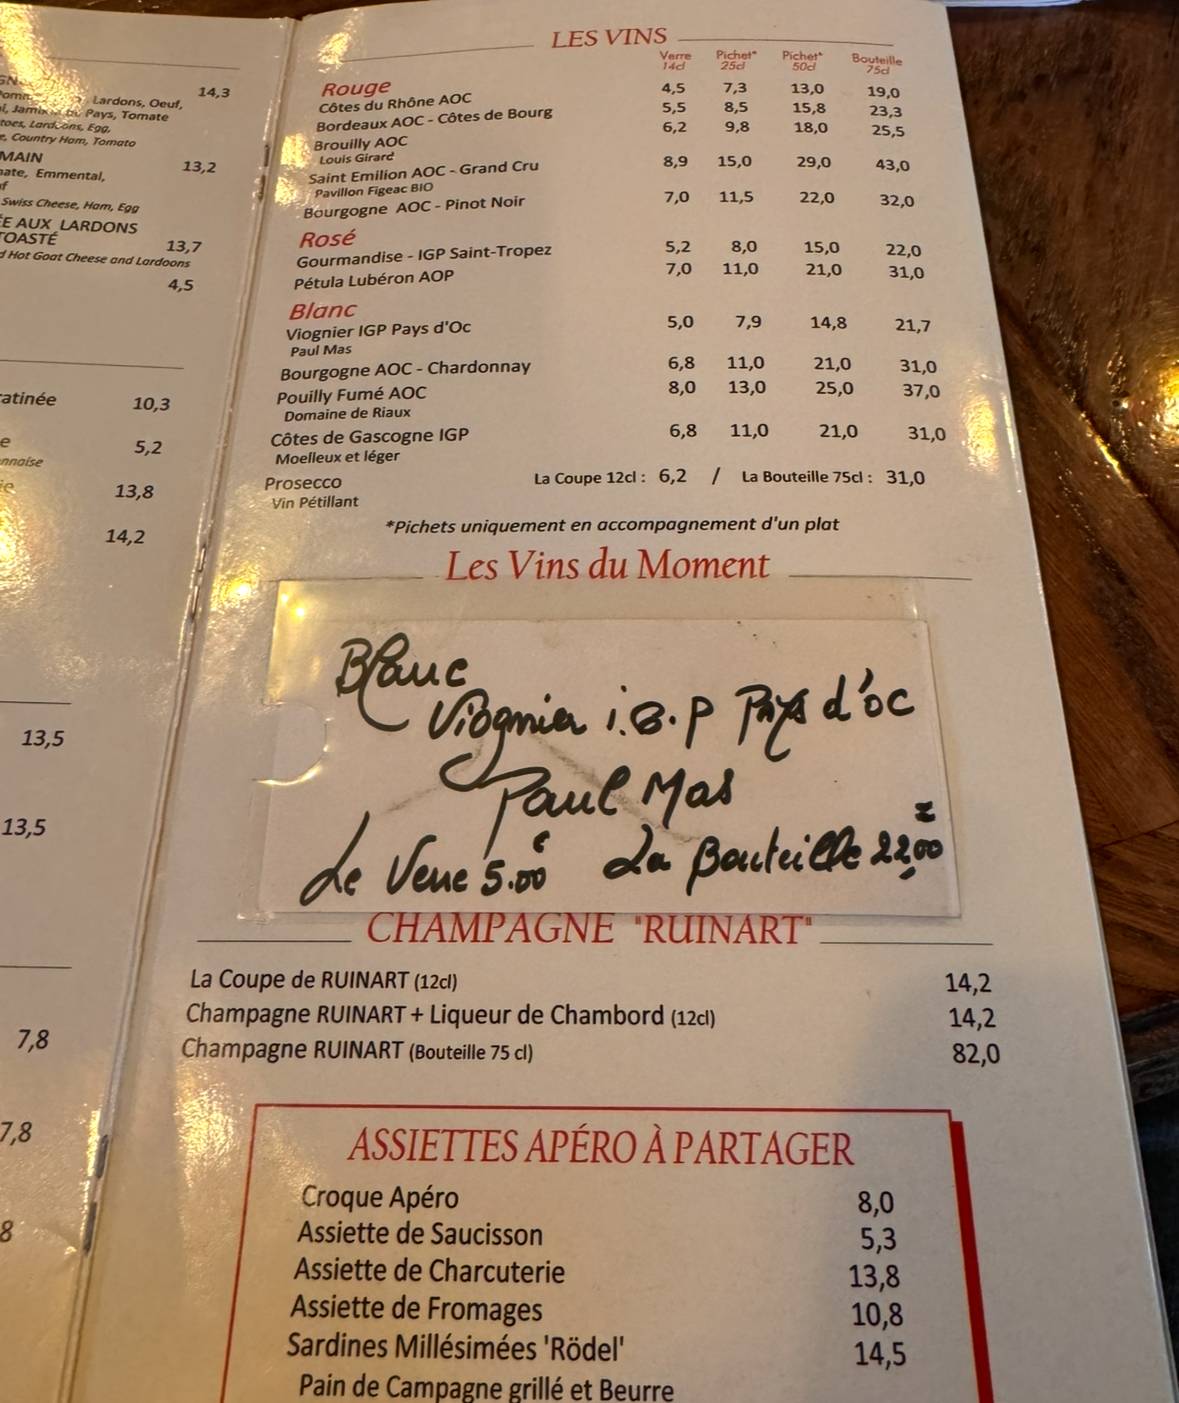 14,3
Lardons, Oeuf,
Pays, Tomate
Egg,
Country Ham, Tomato
MAIN
13,2
Emmental,
Swiss Cheese, Ham, Egg
AUX LARDONS
13,7
Hot Goat Cheese and Lardoons
4,5
10,3
5,2
13,8
14,2
13,5
13,5
7,8
7,8
8
LES VINS
Verre Pichet* Pichet* Bouteille
14cl 25cl 50cl 75cl
Rouge
Côtes du Rhône AOC 4,5 7,3 13,0 19,0
Bordeaux AOC - Côtes de Bourg 5,5 8,5 15,8 23,3
Brouilly AOC 6,2 9,8 18,0 25,5
Louis Girard
Saint Emilion AOC - Grand Cru 8,9 15,0 29,0 43,0
Pavillon Figeac BIO
Bourgogne AOC - Pinot Noir 7,0 11,5 22,0 32,0
Rosé
Gourmandise - IGP Saint-Tropez 5,2 8,0 15,0 22,0
Pétula Lubéron AOP 7,0 11,0 21,0 31,0
Blanc
Viognier IGP Pays d'Oc 5,0 7,9 14,8 21,7
Paul Mas
Bourgogne AOC - Chardonnay 6,8 11,0 21,0 31,0
Pouilly Fumé AOC 8,0 13,0 25,0 37,0
Domaine de Riaux
Côtes de Gascogne IGP 6,8 11,0 21,0 31,0
Moelleux et léger
Prosecco La Coupe 12cl : 6,2 / La Bouteille 75cl : 31,0
Vin Pétillant
*Pichets uniquement en accompagnement d'un plat
Les Vins du Moment
Blanc
Viognier i.G.P Pays d'oc
Paul Mas
Le Verre 5.00€ La Bouteille 22,00
CHAMPAGNE "RUINART"
La Coupe de RUINART (12cl) 14,2
Champagne RUINART + Liqueur de Chambord (12cl) 14,2
Champagne RUINART (Bouteille 75 cl) 82,0
ASSIETTES APÉRO À PARTAGER
Croque Apéro 8,0
Assiette de Saucisson 5,3
Assiette de Charcuterie 13,8
Assiette de Fromages 10,8
Sardines Millésimées 'Rödel' 14,5
Pain de Campagne grillé et Beurre